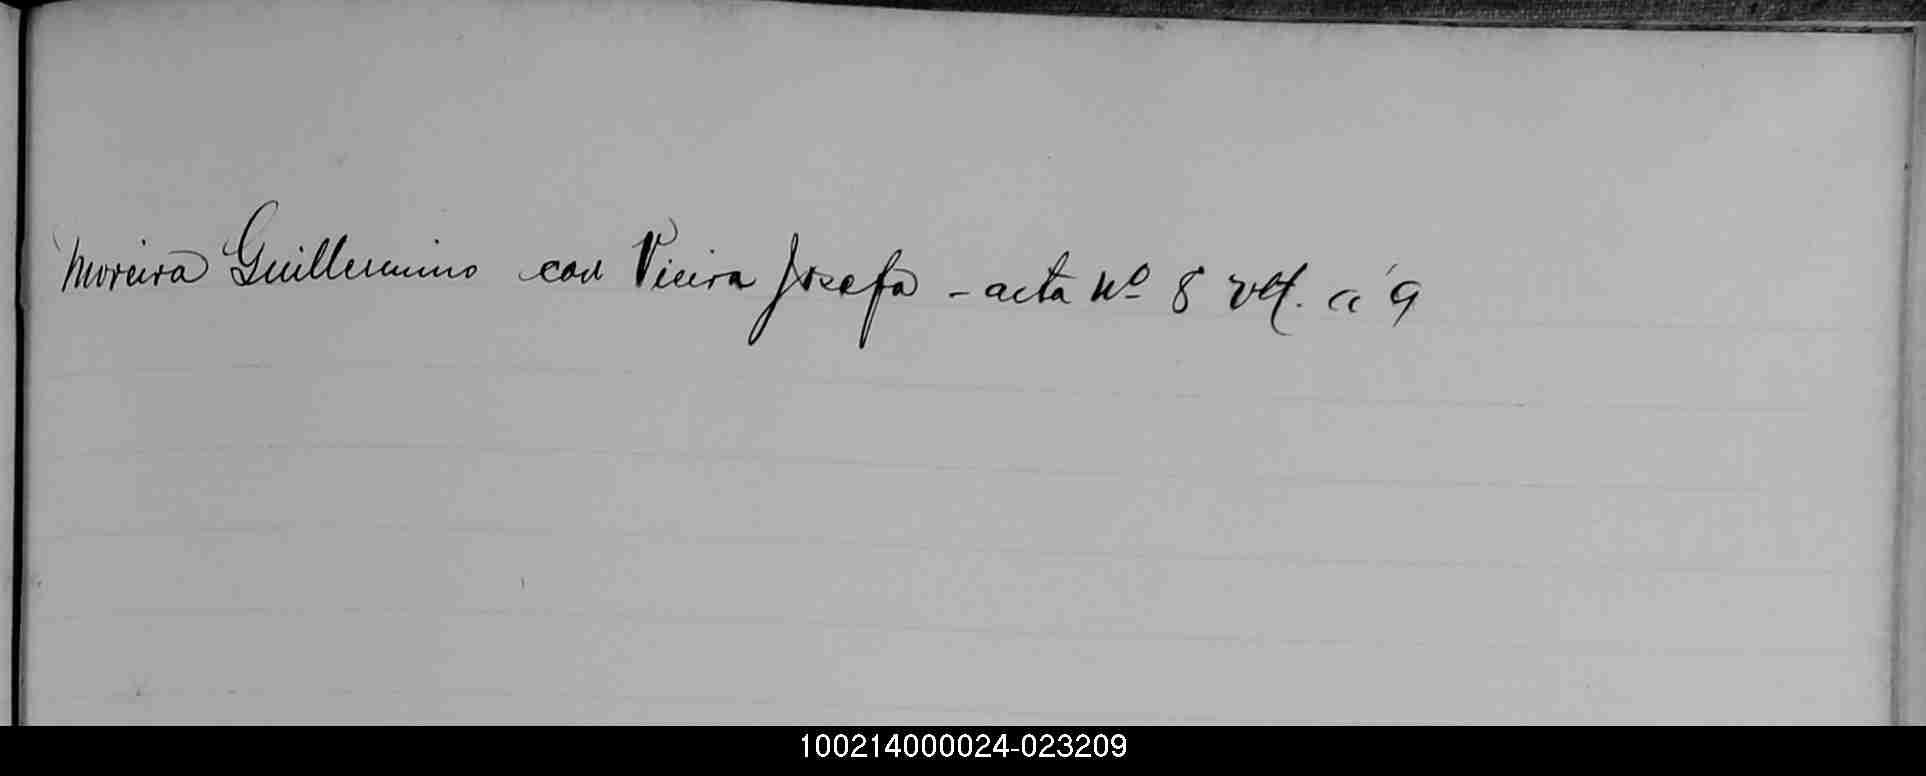 Moreira Guillermino con Vieira Josefa - acta Nº 8 vlt. a 9
100214000024-023209